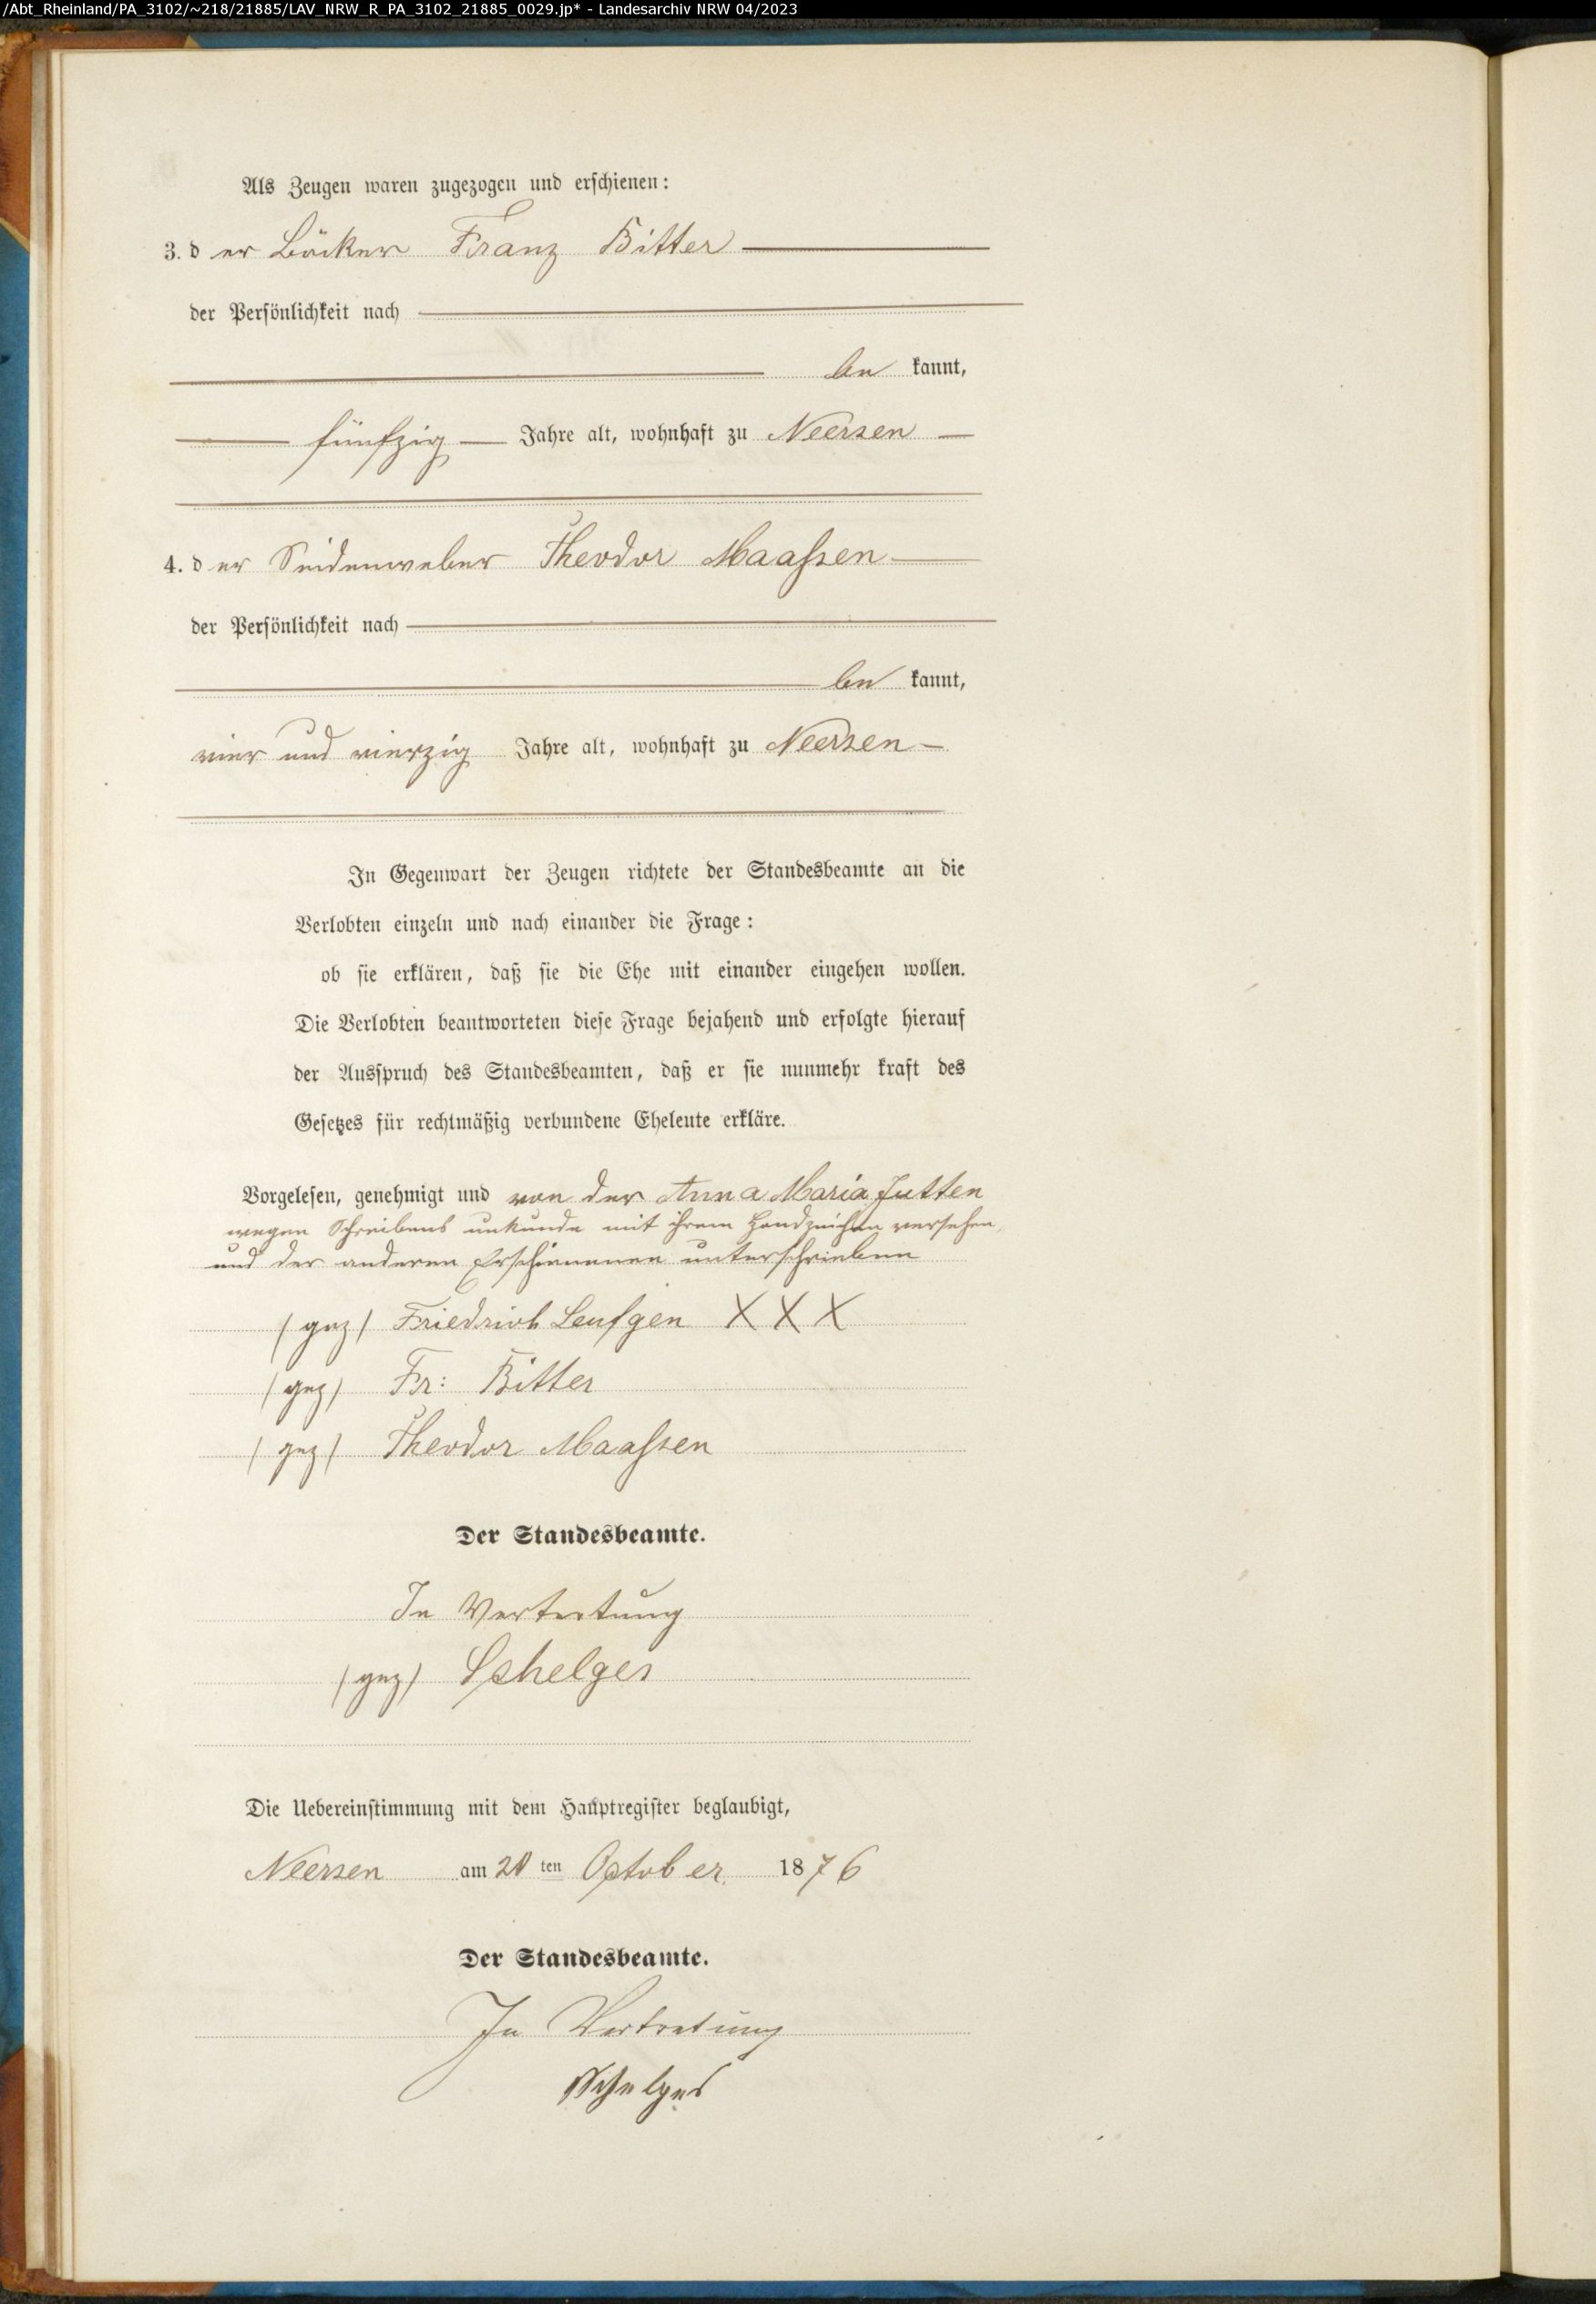 /Abt_Rheinland/PA_3102/~218/21885/LAV_NRW_R_PA_3102_21885_0029.jp* - Landesarchiv NRW 04/2023
Als Zeugen waren zugezogen und erschienen:
3. d er Bäcker Franz Bitter
der Persönlichkeit nach
be kannt,
fünfzig Jahre alt, wohnhaft zu Neersen
4. d er Seidenweber Theodor Maaßen
der Persönlichkeit nach
be kannt,
vier und vierzig Jahre alt, wohnhaft zu Neersen
In Gegenwart der Zeugen richtete der Standesbeamte an die
Verlobten einzeln und nach einander die Frage:
ob sie erklären, daß sie die Ehe mit einander eingehen wollen.
Die Verlobten beantworteten diese Frage bejahend und erfolgte hierauf
der Ausspruch des Standesbeamten, daß er sie nunmehr kraft des
Gesetzes für rechtmäßig verbundene Eheleute erkläre.
Vorgelesen, genehmigt und von der Anna Maria Jutten
wegen Schreibens unkunde mit ihrem Handzeichen versehen
und der anderen Erschienenen unterschrieben
(gez) Friedrich Leufgen X X X
(gez) Fr: Bitter
(gez) Theodor Maaßen
Der Standesbeamte.
In Vertretung
(gez) Schelges
Die Uebereinstimmung mit dem Hauptregister beglaubigt,
Neersen am ten October 1876
Der Standesbeamte.
In Vertretung
Schelges